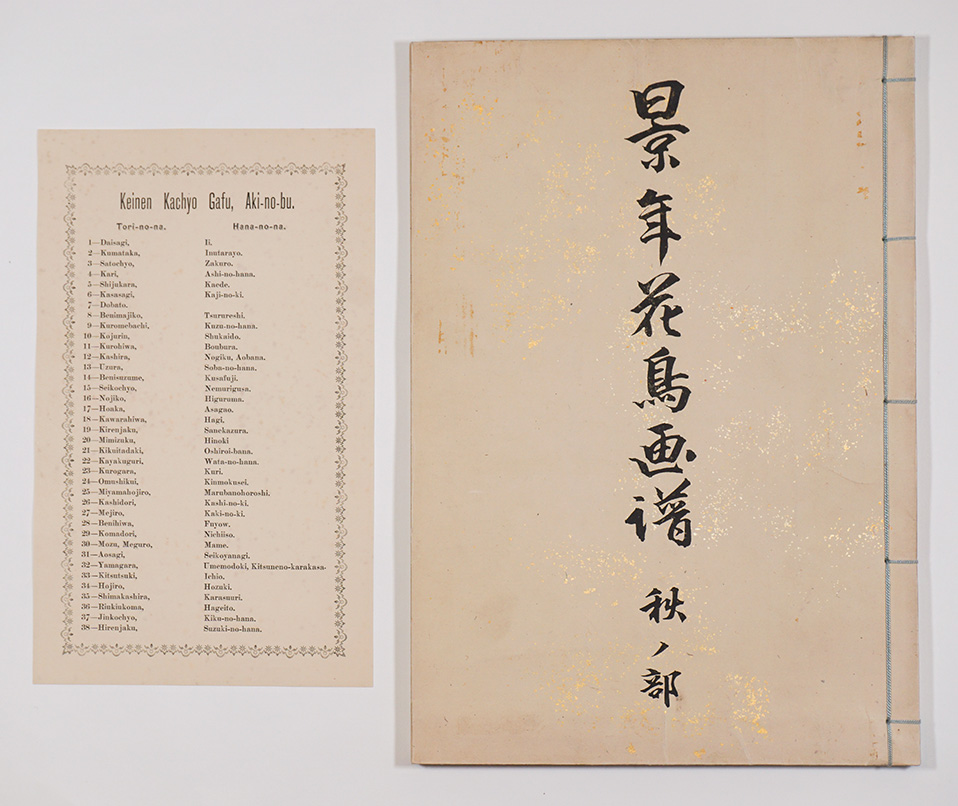 Keinen Kachyo Gafu, Aki-no-bu.
Tori-no-na. Hana-no-na.
1—Daisagi, Ii.
2—Kumataka, Inutarayo.
3—Satochyo, Zakuro.
4—Kari, Ashi-no-hana.
5—Shijukara, Kaede.
6—Kasasagi, Kaji-no-ki.
7—Dobato.
8—Benimajiko, Tsurureshi.
9—Kuromebachi, Kuzu-no-hana.
10—Kojurin, Shukaido.
11—Kurohiwa, Boubura.
12—Kashira, Nogiku, Aobana.
13—Uzura, Soba-no-hana.
14—Benisuzume, Kusafuji.
15—Seikochyo, Nemurigusa.
16—Nojiko, Higuruma.
17—Hoaka, Asagao.
18—Kawarahiwa, Hagi.
19—Kirenjaku, Sanekazura.
20—Mimizuku, Hinoki
21—Kikuitadaki, Oshiroi-hana.
22—Kayakuguri, Wata-no-hana.
23—Kurogara, Kuri.
24—Omushikui, Kinmokusei.
25—Miyamahojiro, Marubanohoroshi.
26—Kashidori, Kashi-no-ki.
27—Mejiro, Kaki-no-ki.
28—Benihiwa, Fuyow.
29—Komadori, Nichiiso.
30—Mozu, Meguro, Mame.
31—Aosagi, Seikoyanagi.
32—Yamagara, Umemodoki, Kitsuneno-karakasa.
33—Kitsutsuki, Ichio.
34—Hojiro, Hozuki.
35—Shimakashira, Karasuuri.
36—Riukiukoma, Hageito.
37—Jinkochyo, Kiku-no-hana.
38—Hirenjaku, Suzuki-no-hana.
景年花鳥画譜 秋ノ部